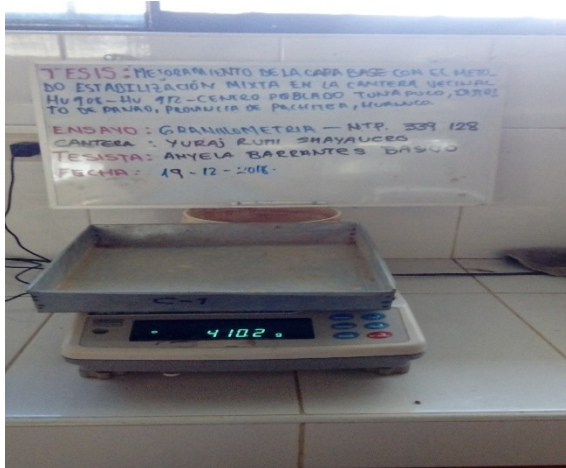 TESIS: MEJORAMIENTO DE LA CAPA BASE CON EL METO
DO ESTABILIZACIÓN MIXTA EN LA CANTERA VECINAL
HU 908 - HU 912 - CENTRO POBLADO TUNAPUCO, DISTRI
TO DE PANAO, PROVINCIA DE PACHITEA, HUANUCO
ENSAYO: GRANULOMETRIA - NTP. 339 128
CANTERA: YURAJ RUMI SHAYAUCRO
TESISTA: ANYELA BARRANTES BASILIO
FECHA: 19-12-2018.
C-1
410.2 g